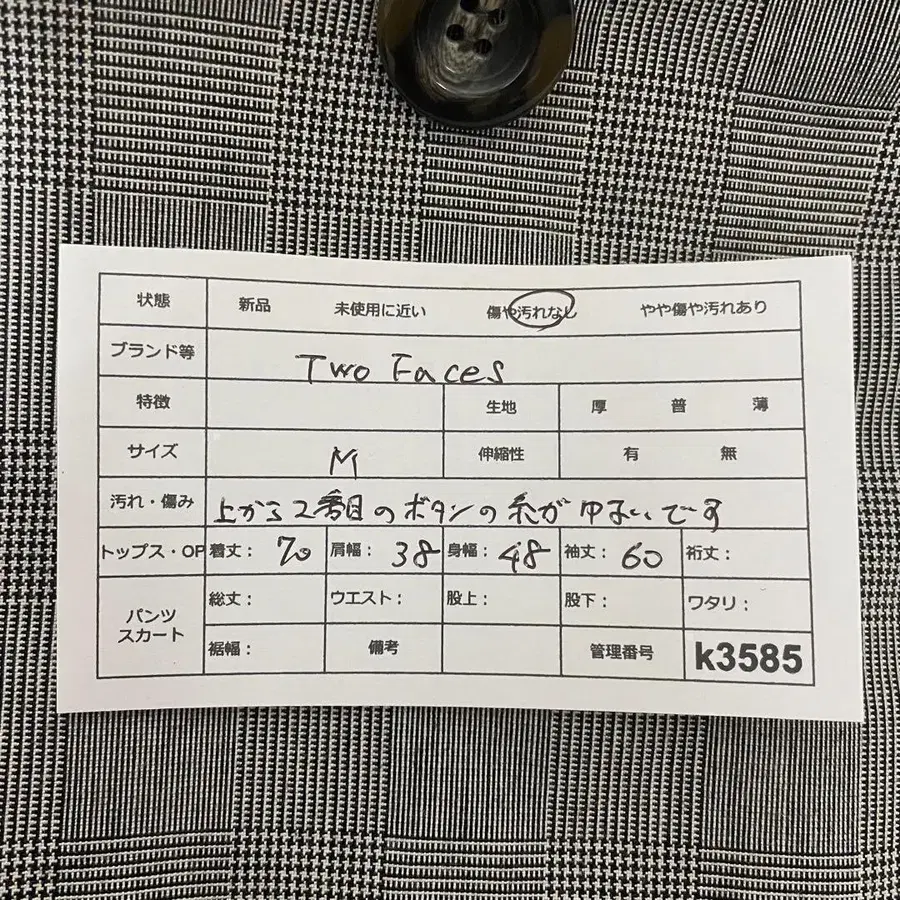 状態 新品 未使用に近い 傷や汚れなし やや傷や汚れあり
ブランド等 Two Faces
特徴 生地 厚 普 薄
サイズ M 伸縮性 有 無
汚れ・傷み 上から2番目のボタンの糸がゆるいです
トップス・OP 着丈： 70 肩幅： 38 身幅： 48 袖丈： 60 裄丈：
パンツ 総丈： ウエスト： 股上： 股下： ワタリ：
スカート 裾幅： 備考 管理番号 k3585